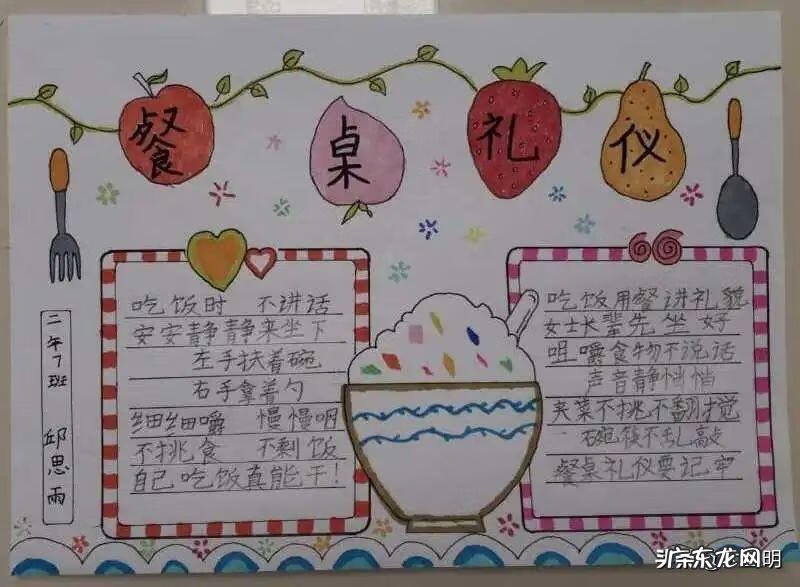 餐桌礼仪
吃饭时 不讲话
安安静静来坐下
左手扶着碗
右手拿着勺
细细嚼 慢慢咽
不挑食 不剩饭
自己吃饭真能干!
吃饭用餐讲礼貌
女士长辈先坐好
咀嚼食物不说话
声音静悄悄
夹菜不挑不翻搅
碗筷不乱敲
餐桌礼仪要记牢
二年7班 邱思雨